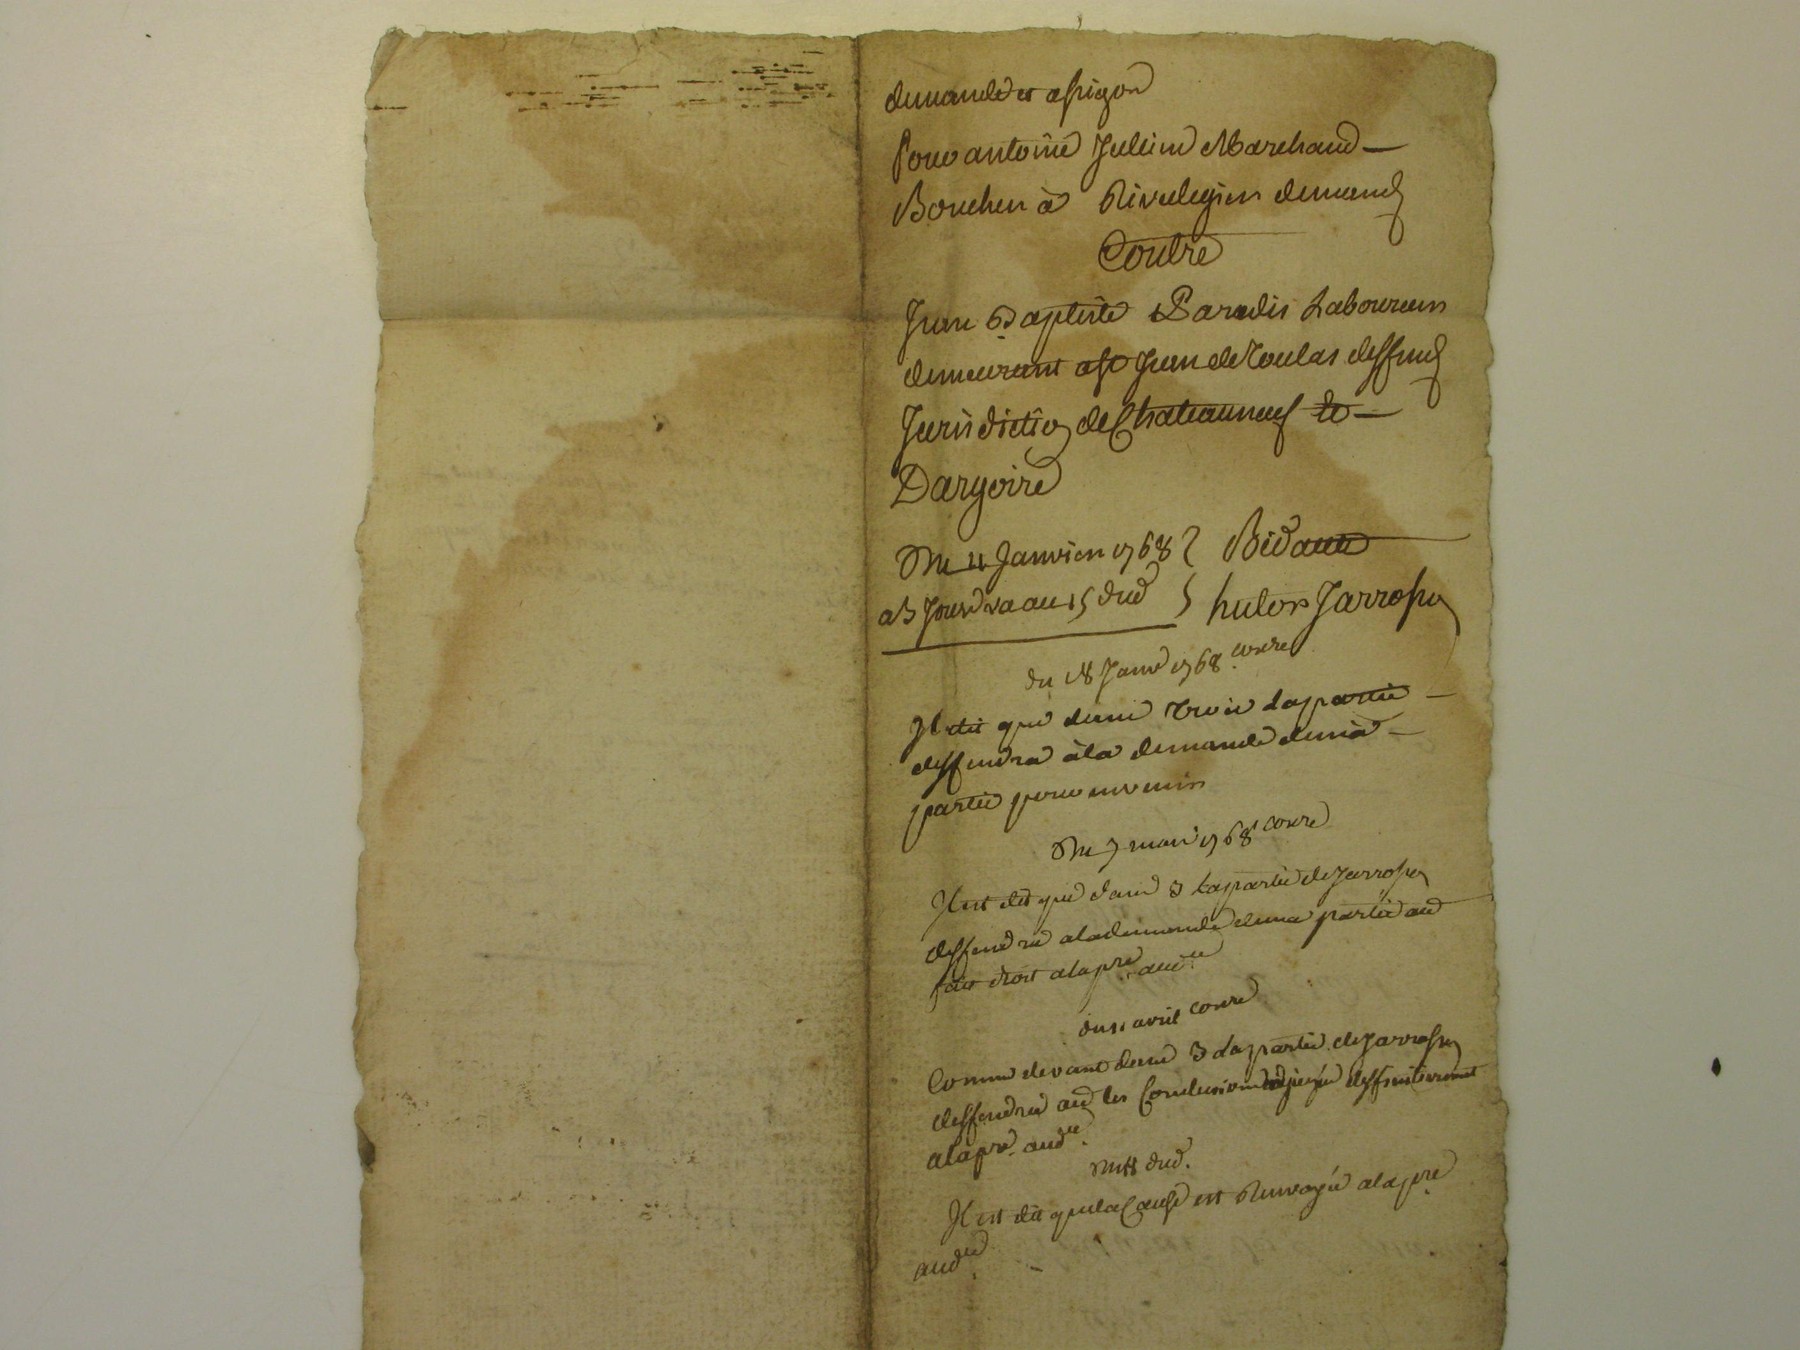 demande et assignon
Pour antoine Jullien Marchand
Boucher à Rivedegier demandr
Contre
Jean Baptiste Paradis Laboureur
demeurant a st Jean de Toulas deffendr
Jurisdiction de Chateauneuf et
Dargoire
Du 11 Janvier 1768
a 3 Jours va au 15 dud hulers Jarrosson
du 18 Janvr 1768
Il est dit que dans trois la partie
deffendra à la demande de ma
partie pour en venir
Du 7 mars 1768
Il est dit que dans 3 la partie de Jarrosson
deffendra a la demande de ma partie aud
fait droit a la pre audce
du 11 avril
Comme devant dans 3 la partie de Jarrosson
deffendra aud les Conclusions adjugées deffinitivement
a la pre audce
dud.
Il est dit que la Cause est Renvoyée a la pre
audce